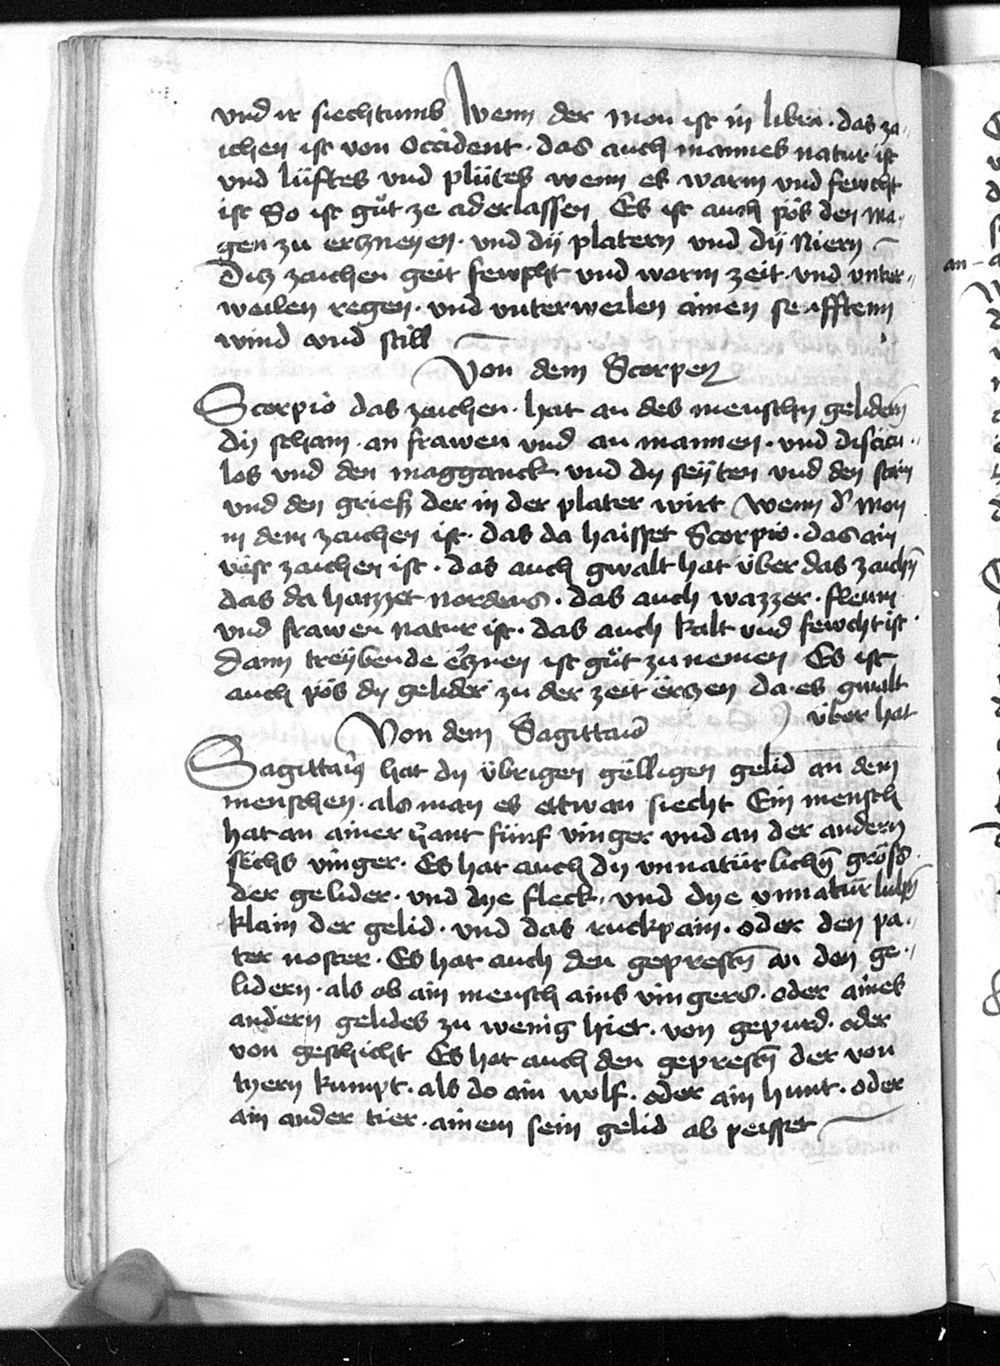 vnd ir siechtumb Wenn der mon ist in libra · das za-
ichen ist von Occident · das auch mannes natur ist
vnd lüftes vnd plütes wenn es warm vnd fewcht
ist So ist güt ze aderlassen Es ist auch pös den ma-
gen zu erczneyen · vnd dÿ platern vnd dÿ Niern
Ditz zaichen geit fewcht vnd warm zeit · vnd vnter-
weilen regen · vnd vnterweilen ainen senfftenn
wind vnd still
Von dem Scorpen
Scorpio das zaichen · hat an des menschn̄ gelidern
dÿ scham · an frawen vnd an mannen · vnd discicu-
los vnd den magganck vnd dÿ seÿten vnd den stain
vnd den grieß der in der plater wirt Wenn d' mon
in dem zaichen ist · das da haisset Scorpio · das ain
vest zaichen ist · das auch gwalt hat über das zaichn̄
das da haizzet nordens · das auch wazzer · fleum
vnd frawen natur ist · das auch kalt vnd fewcht ist ·
Dann treÿbende ercznei ist güt zu nemen Es ist
auch pös dÿ gelider zu der zeit erczen da · es gwalt
über hat
Von dem Sagittario
Sagittarius hat dÿ übrigen gëlligen gelid an dem
menschen · als man es ettwan siecht Ein mensch
hat an ainer hant fünf vinger vnd an der andern
sechs vinger · Es hat auch dÿ vnnatürlichn̄ gröss
der gelider · vnd dye fleck · vnd dye vnnatürlichn̄
klain der gelid · vnd das ruckpain · oder den pa-
ter noster · Es hat auch den geprestn̄ an den ge-
lidern · als ob ain mensch ains vingers · oder aines
andern gelides zu wenig hiet · von gepurd · oder
von geschicht Es hat auch den geprestn̄ der von
tyern kumpt · als do ain wolf · oder ain hunt · oder
ain ander tier · ainem sein gelid ab peisset
an